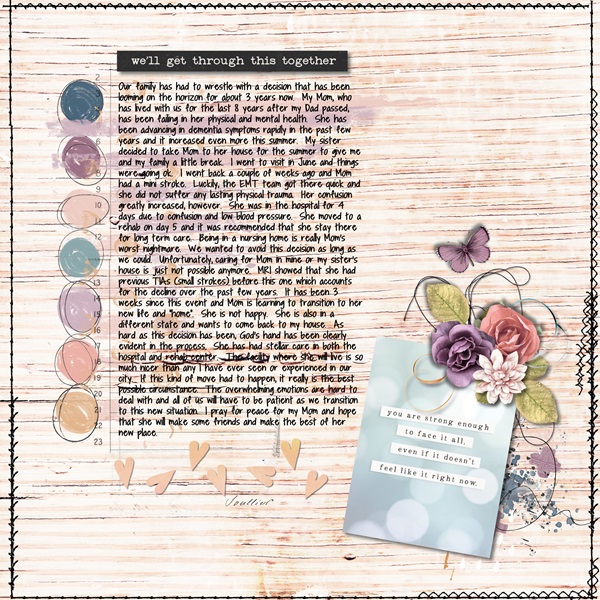 we'll get through this together
Our family has had to wrestle with a decision that has been
looming on the horizon for about 3 years now. My Mom, who
has lived with us for the last 8 years after my Dad passed,
has been failing in her physical and mental health. She has
been advancing in dementia symptoms rapidly in the past few
years and it increased even more this summer. My sister
decided to take Mom to her house for the summer to give me
and my family a little break. I went to visit in June and things
were going ok. I went back a couple of weeks ago and Mom
had a mini stroke. Luckily, the EMT team got there quick and
she did not suffer any lasting physical trauma. Her confusion
greatly increased, however. She was in the hospital for 4
days due to confusion and low blood pressure. She moved to a
rehab on day 5 and it was recommended that she stay there
for long term care. Being in a nursing home is really Mom's
worst nightmare. We wanted to avoid this decision as long as
we could. Unfortunately, caring for Mom in mine or my sister's
house is just not possible anymore. MRI showed that she had
previous TIAs (small strokes) before this one which accounts
for the decline over the past few years. It has been 3
weeks since this event and Mom is learning to transition to her
new life and "home". She is not happy. She is also in a
different state and wants to come back to my house. As
hard as this decision has been, God's hand has been clearly
evident in the process. She has had stellar care in both the
hospital and rehab center. The facility where she will live is so
much nicer than any I have ever seen or experienced in our
city. If this kind of move had to happen, it really is the best
possible circumstance. The overwhelming emotions are hard to
deal with and all of us will have to be patient as we transition
to this new situation. I pray for peace for my Mom and hope
that she will make some friends and make the best of her
new place.
2
6
9
10
12
13
14
15
16
18
19
20
22
23
you are strong enough
to face it all,
even if it doesn't
feel like it right now.